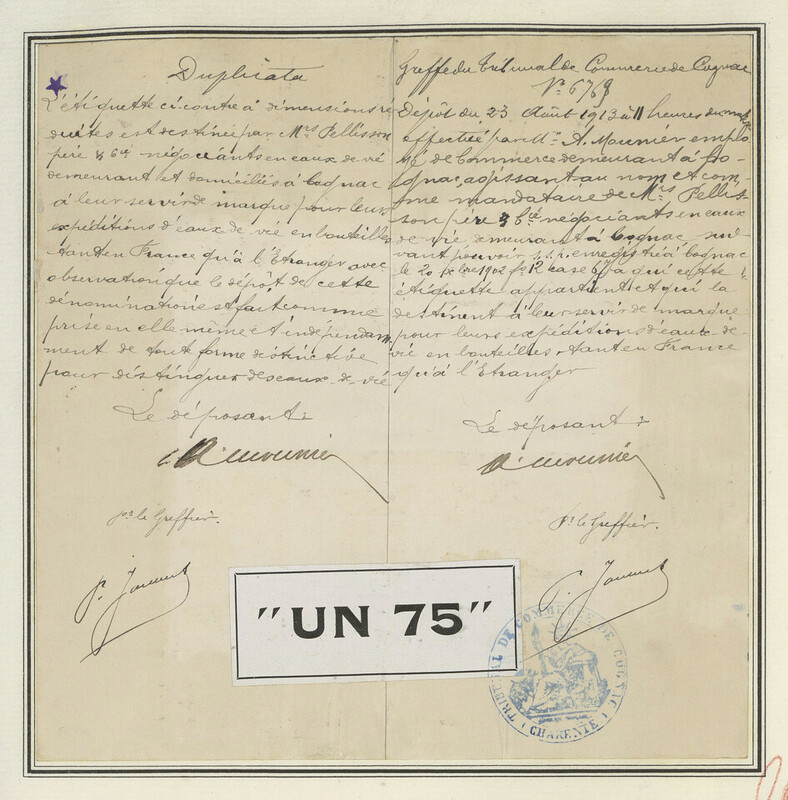 Duplicata
L'étiquette ci contre à dimensions ré
duites est destinée par Mrs Pellisson
père & Cie négociants en eaux de vie
demeurant et domiciliés à Cognac
à leur servir de marque pour leurs
expéditions d'eaux de vie en bouteilles
tant en France qu'à l'Etranger avec
observation que le dépôt de cette
dénomination est fait comme
prise en elle même et indépendam
ment de tout forme distinctive
pour distinguer des eaux-de-vie
Le déposant:
A. Mounier
pr le Greffier.
Greffe du Tribunal de Commerce de Cognac
No 6768
Dépôt du 23 Août 1913 à 11 heures du matin
effectué par Mr A. Mounier emplo
yé de Commerce demeurant à Co-
gnac, agissant au nom et com-
me mandataire de Mrs Pellis-
son père & Cie négociants en eaux
de vie demeurant à Cognac, sui-
vant pouvoir s.s.p. enregistré à Cognac
le 20 1902 fo 12 case 6, à qui cette
étiquette appartient et qui la
destinent à leur servir de marque
pour leurs expéditions d'eaux-de-
vie en bouteilles, tant en France
qu'à l'Etranger
Le déposant:
A. Mounier
pr le Greffier.
"UN 75"
TRIBUNAL DE COMMERCE DE COGNAC
(CHARENTE)